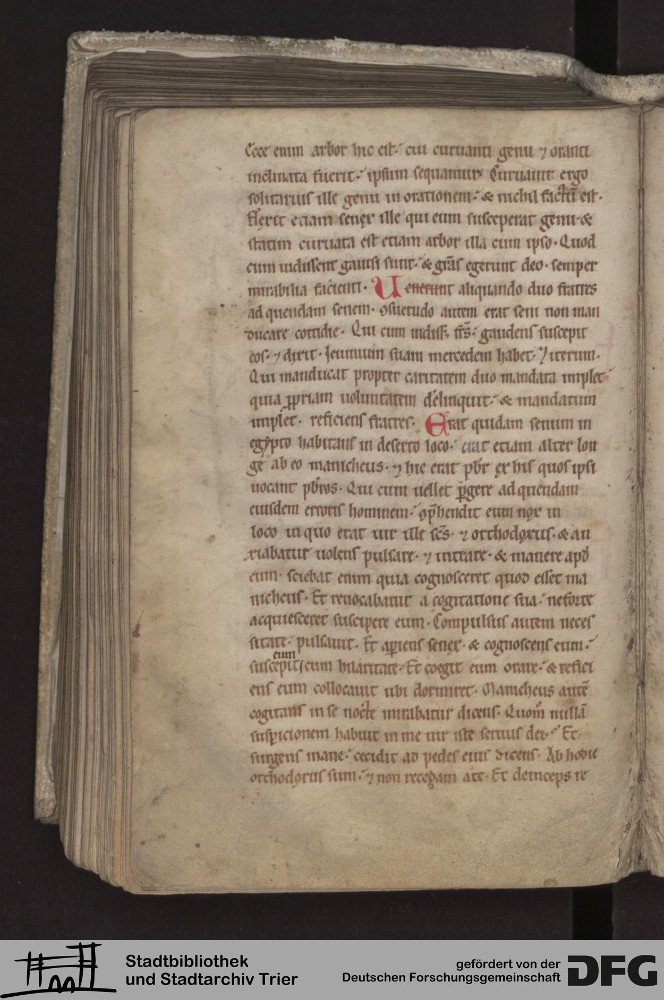 Ecce enim arbor hic est. cui curuanti genu ⁊ oranti
inclinata fuerit. ipsum sequamur. Curuauit ergo
solitarius ille genu in orationem. & nichil factũ est.
Flexit etiam senex ille qui eum susceperat genu. &
statim curuata est etiam arbor illa cum ipso. Quod
cum uidissent gauisi sunt. & grãs egerunt deo. semper
mirabilia facienti. Uenerunt aliquando duo fratres
ad quendam senem. ɔsuetudo autem erat seni non man
ducare cottidie. Qui cum uidiss. frs̃. gaudens suscepit
eos. ⁊ dixit. Ieiunium suam mercedem habet. ⁊ iterum.
Qui manducat propter caritatem duo mandata implet.
quia ꝓpriam uoluntatem delinquit. & mandatum
implet. reficiens fratres. Erat quidam senium in
egypto habitans in deserto loco. erat etiam alter lon
ge ab eo manicheus. ⁊ hic erat pbr̃ ex his quos ipsi
uocant pbr̃os. Qui cum uellet ꝑgere ad quendam
eiusdem erroris hominem. ɔp̃hendit eum nox in
loco in quo erat uir ille sc̃s. ⁊ orthodoxus. & an
xiabatur uolens pulsare. ⁊ intrare. & manere apđ
eum. sciebat enim quia cognosceret quod esset ma
nicheus. Et reuocabatur a cogitatione sua. ne forte
acquiesceret suscipere eum. Compulsus autem neces
sitate. pulsauit. Et aperiens senex. & cognoscens eum.
suscepit eum cum hilaritate. Et coegit eum orare. & refici
ens eum collocauit ubi dormiret. Manicheus autẽ
cogitans in se nocte mirabatur dicens. Quom̃ nullã
suspicionem habuit in me uir iste seruus dei. Et
surgens mane. cecidit ad pedes eius dicens. Ab hodie
orthodoxus sum. ⁊ non recedam a te. Et deinceps re
Stadtbibliothek
und Stadtarchiv Trier
gefördert von der
Deutschen Forschungsgemeinschaft
DFG